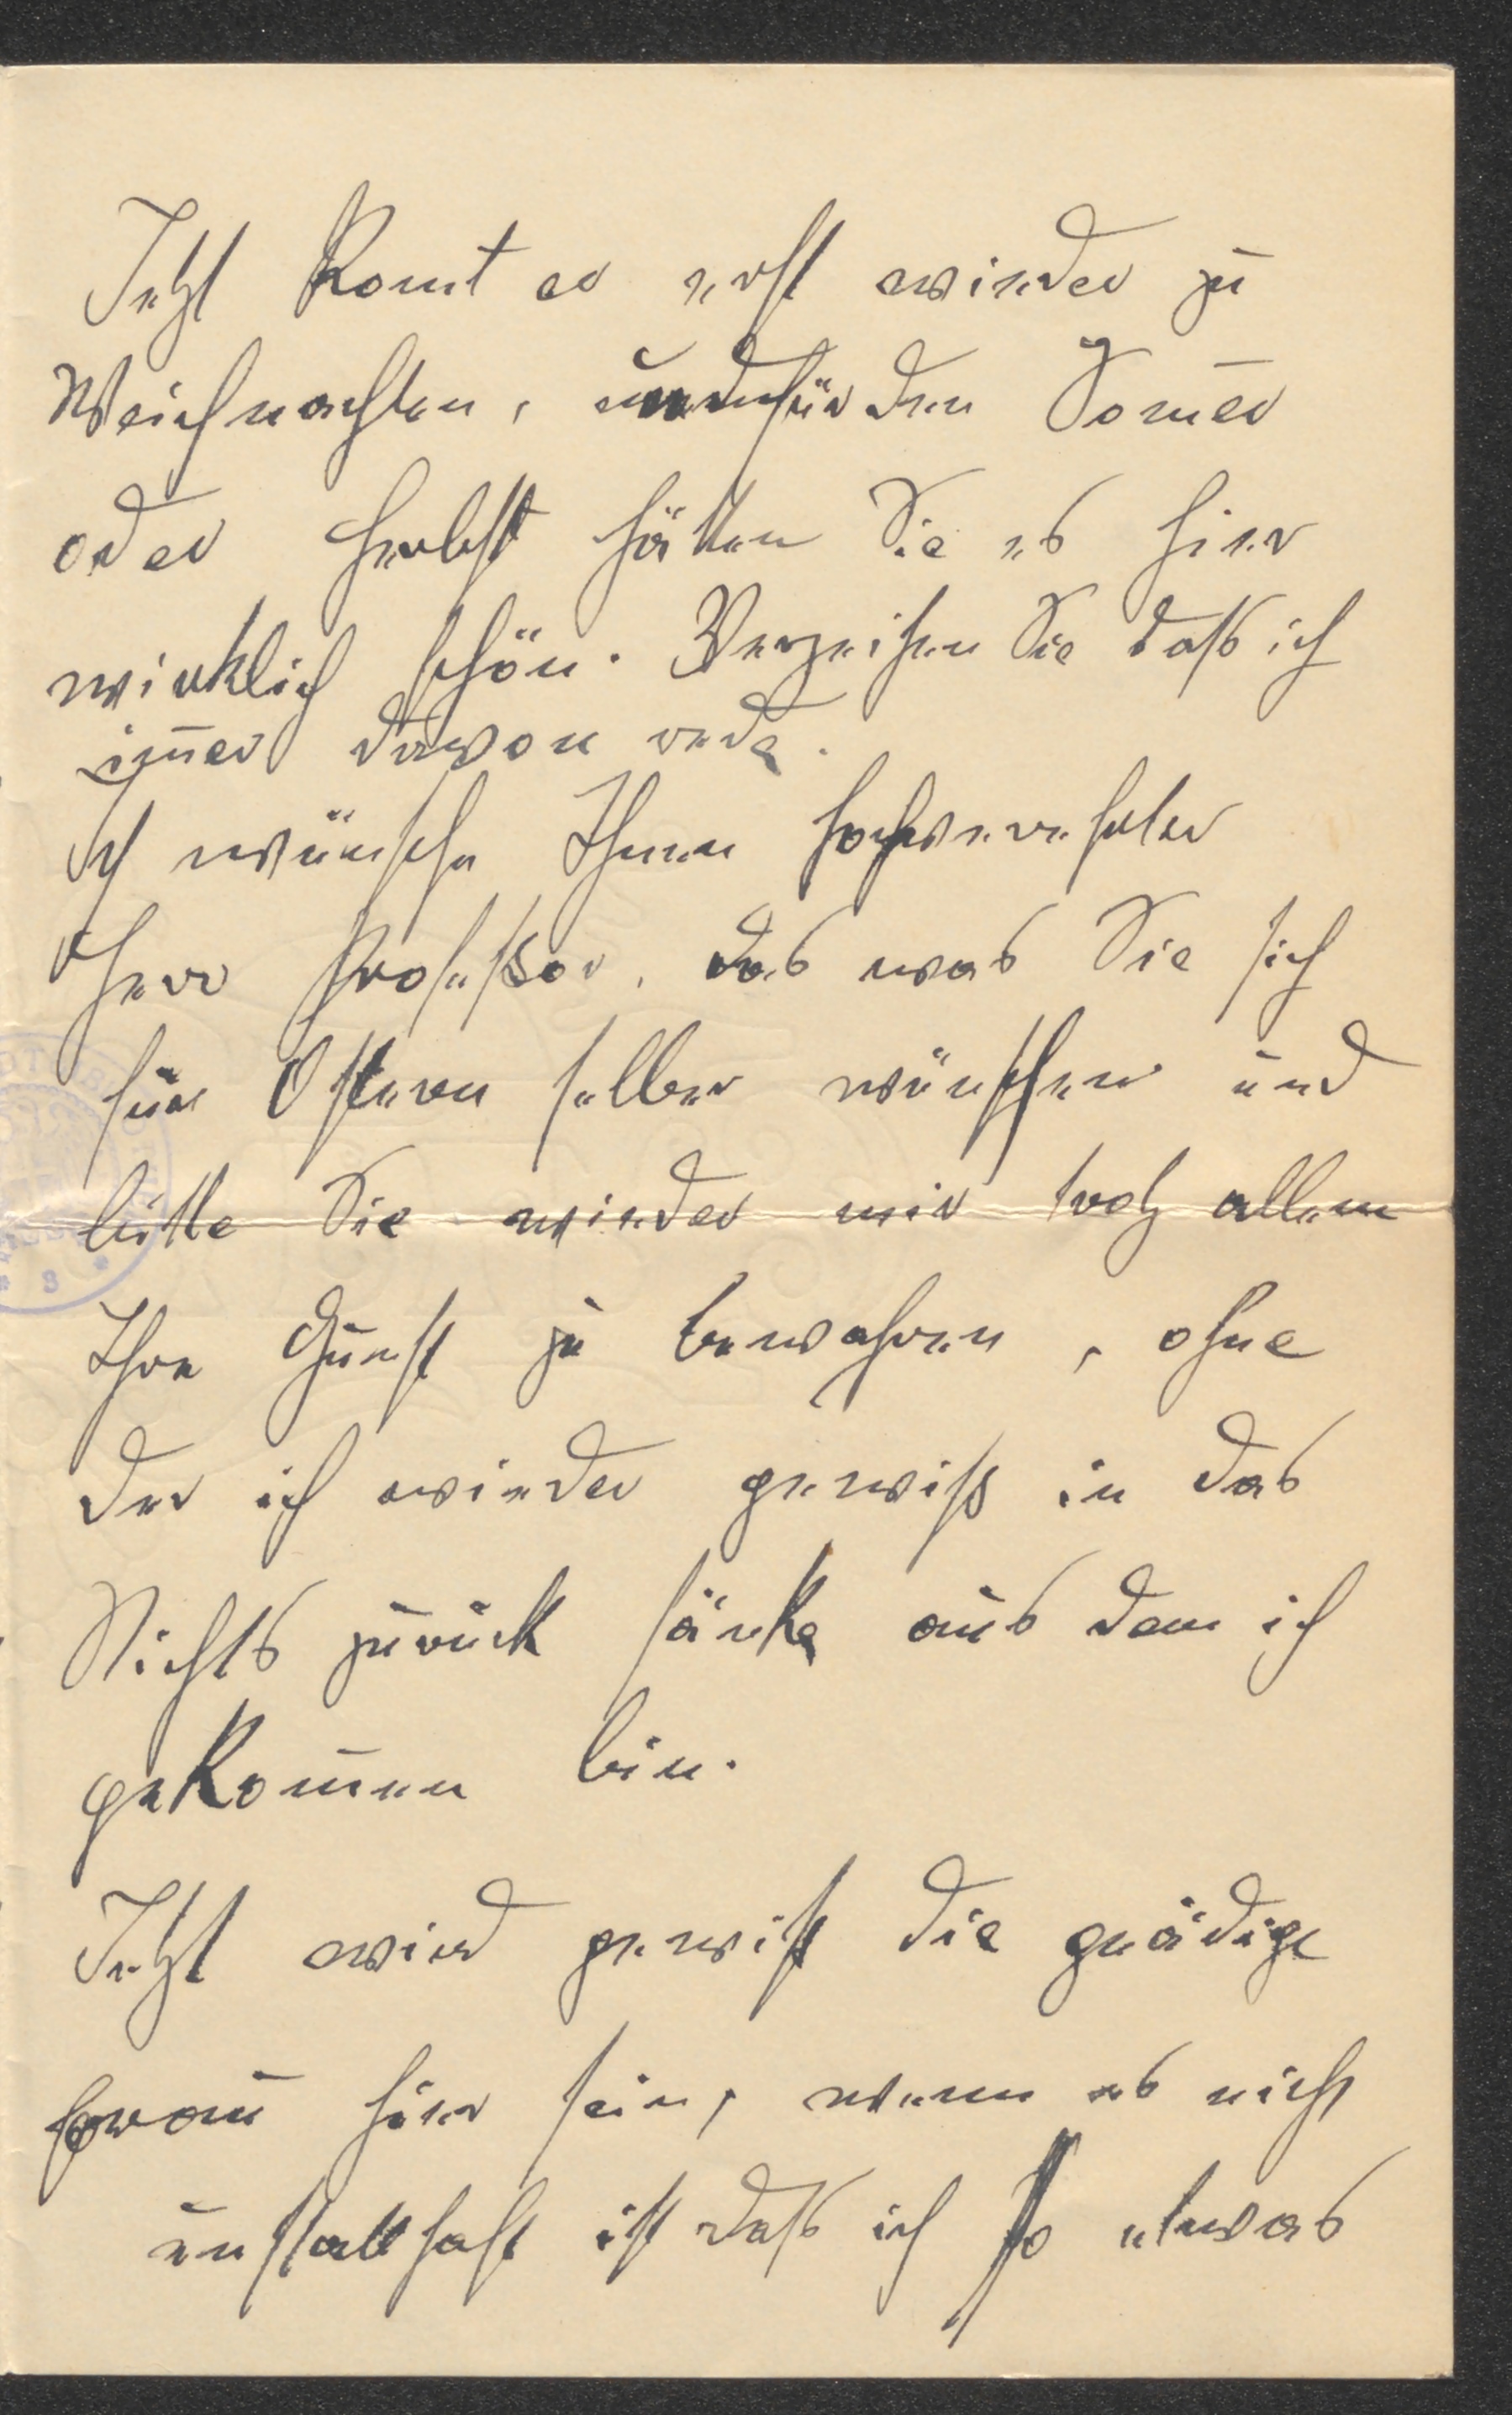 Jetzt komt er erst wieder zu
Weihnachten, und für den Som̅er
oder Herbst hätten Sie es hier
wirklich schön. Verzeihen Sie daß ich
im̅er davon rede.
Ich wünsche Ihnen hochverehrter
Herr Profeßor, das was Sie sich
für Ostern selber wünschen und
bitte Sie wieder mir trotz allem
Ihre Gunst zu bewahren, ohne
der ich wieder gewiß in das
Nichts zurück sänke aus dem ich
gekom̅en bin.
Jetzt wird gewiß die gnädige
Frau hier sein, wenn es nicht
unstatthaft ist daß ich so etwas